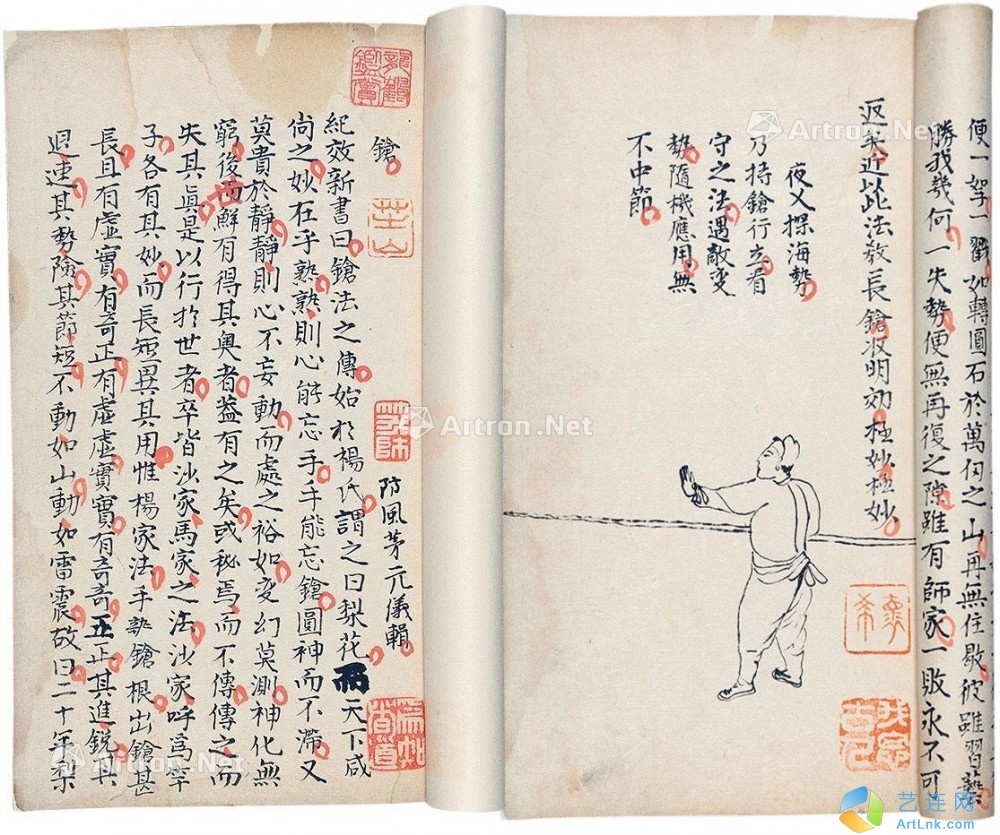 便一拏一戳如轉圓石於萬仞之山再無住歇彼雖習藝
勝我幾何一失勢便無再復之隙雖有師家一敗永不可
返矣近此法教長鎗收明効極妙極妙
夜叉探海勢
乃持鎗行立看
守之法遇敵变
勢隨機應用無
不中節
鎗
防風茅元儀輯
紀效新書曰鎗法之傳始於楊氏謂之曰梨花而天下咸
尚之妙在乎熟熟則心能忘手手能忘鎗圓神而不滯又
莫貴於靜靜則心不妄動而處之裕如变幻莫測神化無
窮後世鮮有得其奥者盖有之矣或秘焉而不傳傳之而
失其真是以行於世者卒皆沙家馬家之法沙家呼爲竿
子各有其妙而長短異其用惟楊家法手執鎗根出鎗甚
長且有虛實有奇正有虛虛實實有奇奇正正其進鋭其
退速其勢險其節短不動如山動如雷震故曰二十年梨
Artron.Net
Artron.Net
Artron.Net
Artron.Net
艺连网
ArtLnk.com